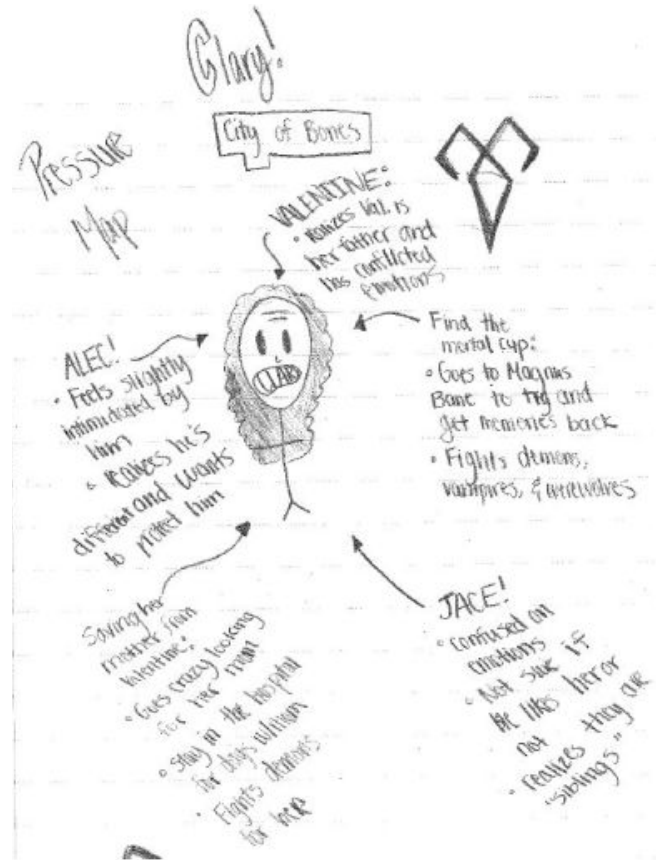 Clary!
City of Bones
Pressure
Map
VALENTINE:
• realizes Val. is
her father and
has conflicted
emotions
ALEC!
• Feels slightly
intimidated by
him
• realizes he's
different and wants
to protect him
CLARY
Find the
mortal cup:
• Goes to Magnus
Bane to try and
get memories back
• Fights demons,
vampires, & werewolves
Saving her
mother from
Valentine:
• Goes crazy looking
for her mom
• stay in the hospital
for days w/ mom
• Fights demons
for her
JACE!
• confused on
emotions
• Not sure if
He likes her or
not
• realizes they are
"siblings"